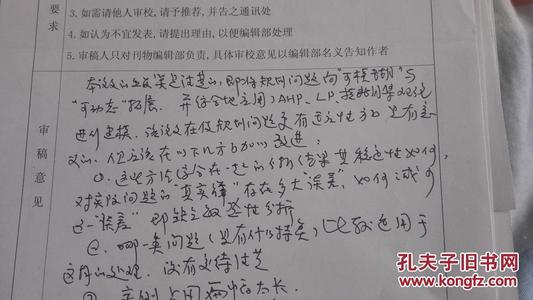 要求
3. 如需请他人审校,请予推荐,并告之通讯处
4. 如认为不宜发表,请提出理由,以便编辑部处理
5. 审稿人只对刊物编辑部负责,具体审校意见以编辑部名义告知作者
审稿意见
本论文的立意是清楚的,即将规划问题向"可模糊"与
"可动态"拓展,并综合地应用AHP、LP、
进行建模。该论文在使规划问题更有适应性方面是有意
义的,但应该在以下几方面加以改进:
①. 这些方法综合在一起的分析结果其稳定性如何,
对实际问题的"真实解"存在多大"误差",如何减少
这一"误差"即缺乏敏感性分析
②. 哪一类问题(具有什么特类)比较适用于
这样的处理,没有交待清楚
③. 实例占用篇幅太长.
孔夫子旧书网
KONGFZ.COM